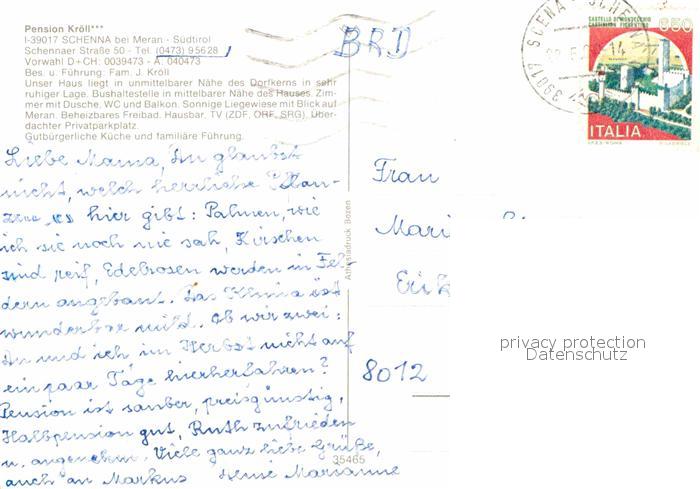 Pension Kröll***
I-39017 SCHENNA bei Meran - Südtirol
Schennaer Straße 50 - Tel. (0473) 95628
Vorwahl D+CH: 0039473 - A: 040473
Bes. u. Führung: Fam. J. Kröll
Unser Haus liegt in unmittelbarer Nähe des Dorfkerns in sehr
ruhiger Lage. Bushaltestelle in mittelbarer Nähe des Hauses. Zim-
mer mit Dusche, WC und Balkon. Sonnige Liegewiese mit Blick auf
Meran. Beheizbares Freibad. Hausbar, TV (ZDF, ORF, SRG). Über-
dachter Privatparkplatz.
Gutbürgerliche Küche und familiäre Führung.
Liebe Mama, Du glaubst
nicht, welch herrliche Pflan-
zen es hier gibt: Palmen, wie
ich sie noch nie sah, Kirschen
sind reif, Edelrosen werden in Fel-
dern angebaut. Das Klima ist
wunderbar mild. Ob wir zwei:
Du und ich im Herbst nicht auf
ein paar Tage hierherfahren?
Pension ist sauber, preisgünstig,
Halbpension gut, Ruth zufrieden
u. angenehm. Viele ganz liebe Grüße,
auch an Markus Deine Marianne
35465
Athesiadruck Bozen
BRD
39017 SCENA SCHENNA
14
CASTELLO DI MONTECCHIO
CASTIGLION FIORENTINO
650
ITALIA
Frau
Mari
Erik
8012
privacy protection
Datenschutz